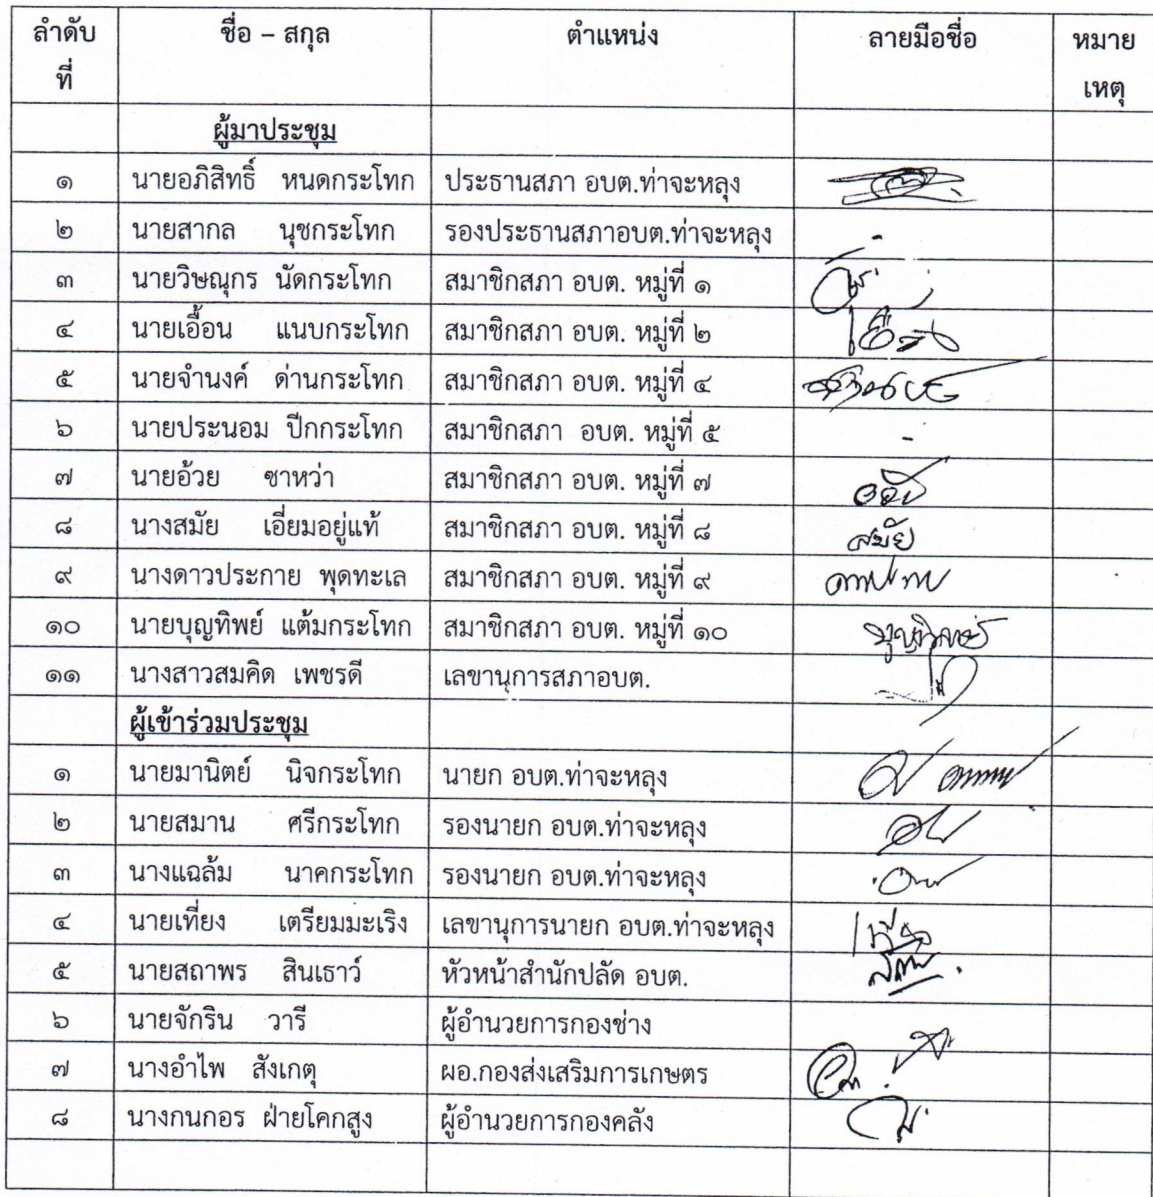 ลำดับที่ ชื่อ – สกุล ตำแหน่ง ลายมือชื่อ หมายเหตุ
ผู้มาประชุม
๑ นายอภิสิทธิ์ หนดกระโทก ประธานสภา อบต.ท่าจะหลุง
๒ นายสากล นุชกระโทก รองประธานสภาอบต.ท่าจะหลุง -
๓ นายวิษณุกร นัดกระโทก สมาชิกสภา อบต. หมู่ที่ ๑
๔ นายเอื้อน แนบกระโทก สมาชิกสภา อบต. หมู่ที่ ๒
๕ นายจำนงค์ ด่านกระโทก สมาชิกสภา อบต. หมู่ที่ ๔
๖ นายประนอม ปึกกระโทก สมาชิกสภา อบต. หมู่ที่ ๕ -
๗ นายอ้วย ซาหว่า สมาชิกสภา อบต. หมู่ที่ ๗
๘ นางสมัย เอี่ยมอยู่แท้ สมาชิกสภา อบต. หมู่ที่ ๘ สมัย
๙ นางดาวประกาย พุดทะเล สมาชิกสภา อบต. หมู่ที่ ๙
๑๐ นายบุญทิพย์ แต้มกระโทก สมาชิกสภา อบต. หมู่ที่ ๑๐
๑๑ นางสาวสมคิด เพชรดี เลขานุการสภาอบต.
ผู้เข้าร่วมประชุม
๑ นายมานิตย์ นิจกระโทก นายก อบต.ท่าจะหลุง
๒ นายสมาน ศรีกระโทก รองนายก อบต.ท่าจะหลุง
๓ นางแฉล้ม นาคกระโทก รองนายก อบต.ท่าจะหลุง
๔ นายเที่ยง เตรียมมะเริง เลขานุการนายก อบต.ท่าจะหลุง
๕ นายสถาพร สินเธาว์ หัวหน้าสำนักปลัด อบต.
๖ นายจักริน วารี ผู้อำนวยการกองช่าง
๗ นางอำไพ สังเกตุ ผอ.กองส่งเสริมการเกษตร
๘ นางกนกอร ฝ่ายโคกสูง ผู้อำนวยการกองคลัง